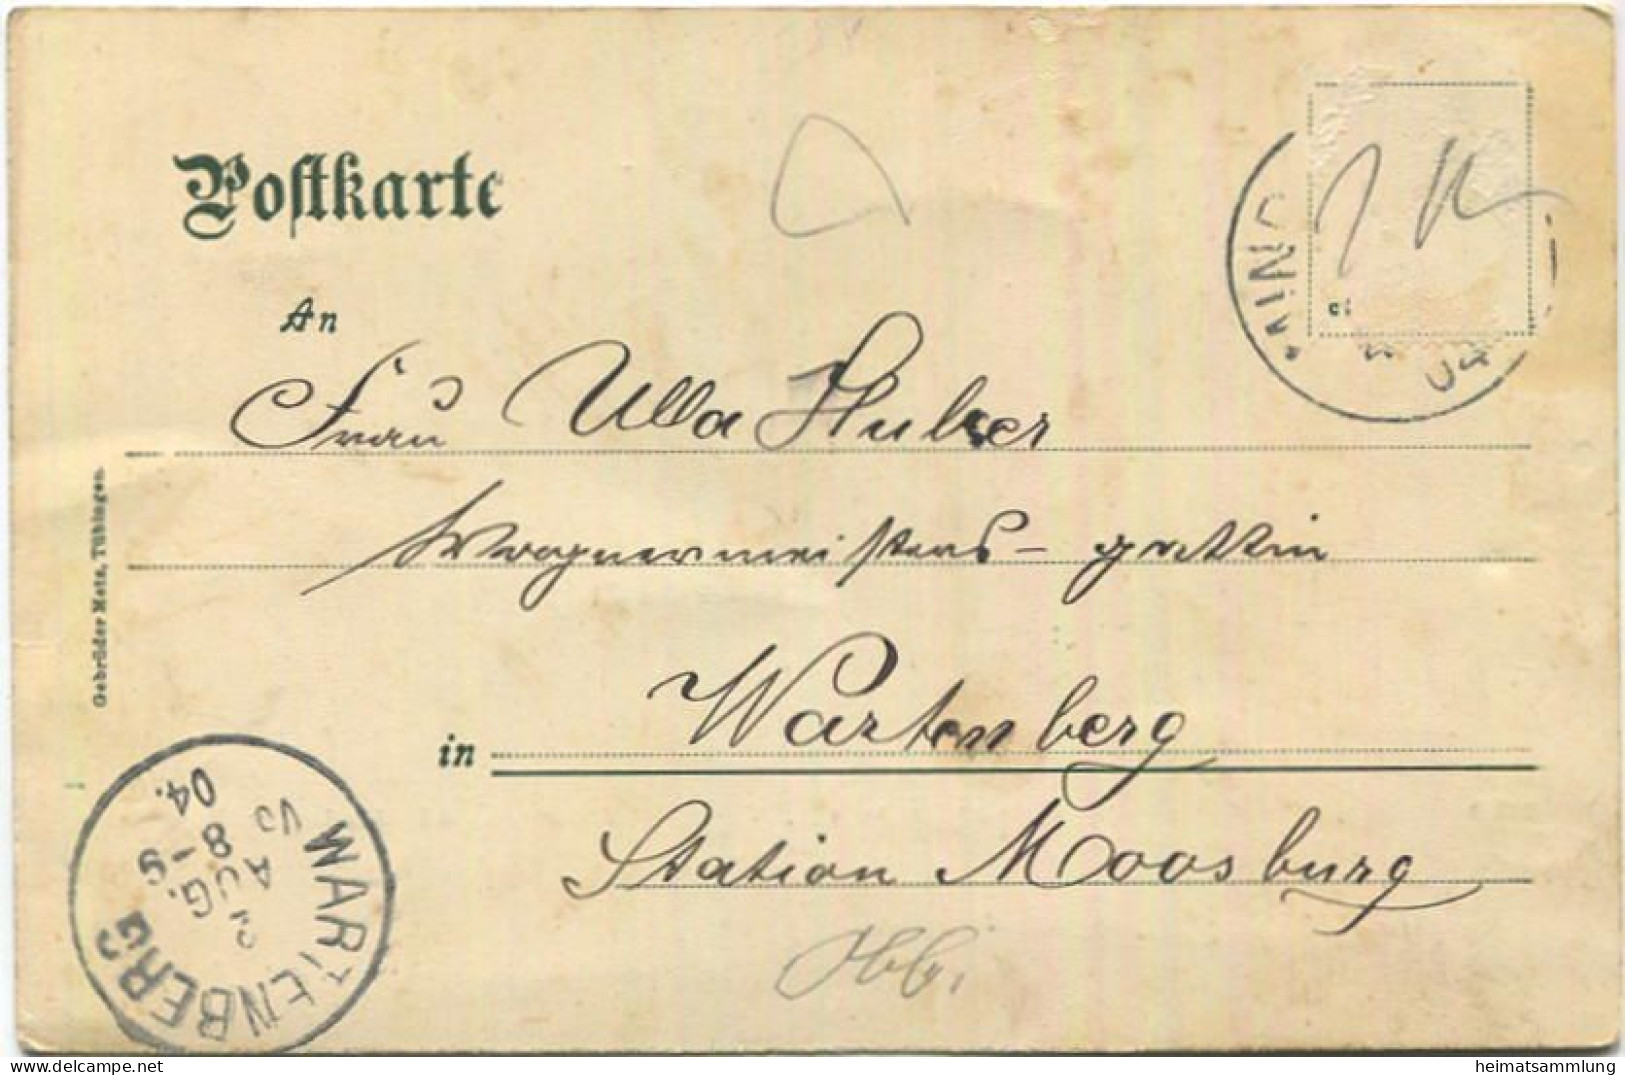 Postkarte
An
Frau Ulla Huber
Wagnermeisters-gattin
in Wartenberg
Station Moosburg
Gebrüder Metz, Tübingen.
WARTENBERG
2 AUG.
8-9
04.
04
heimatsammlung